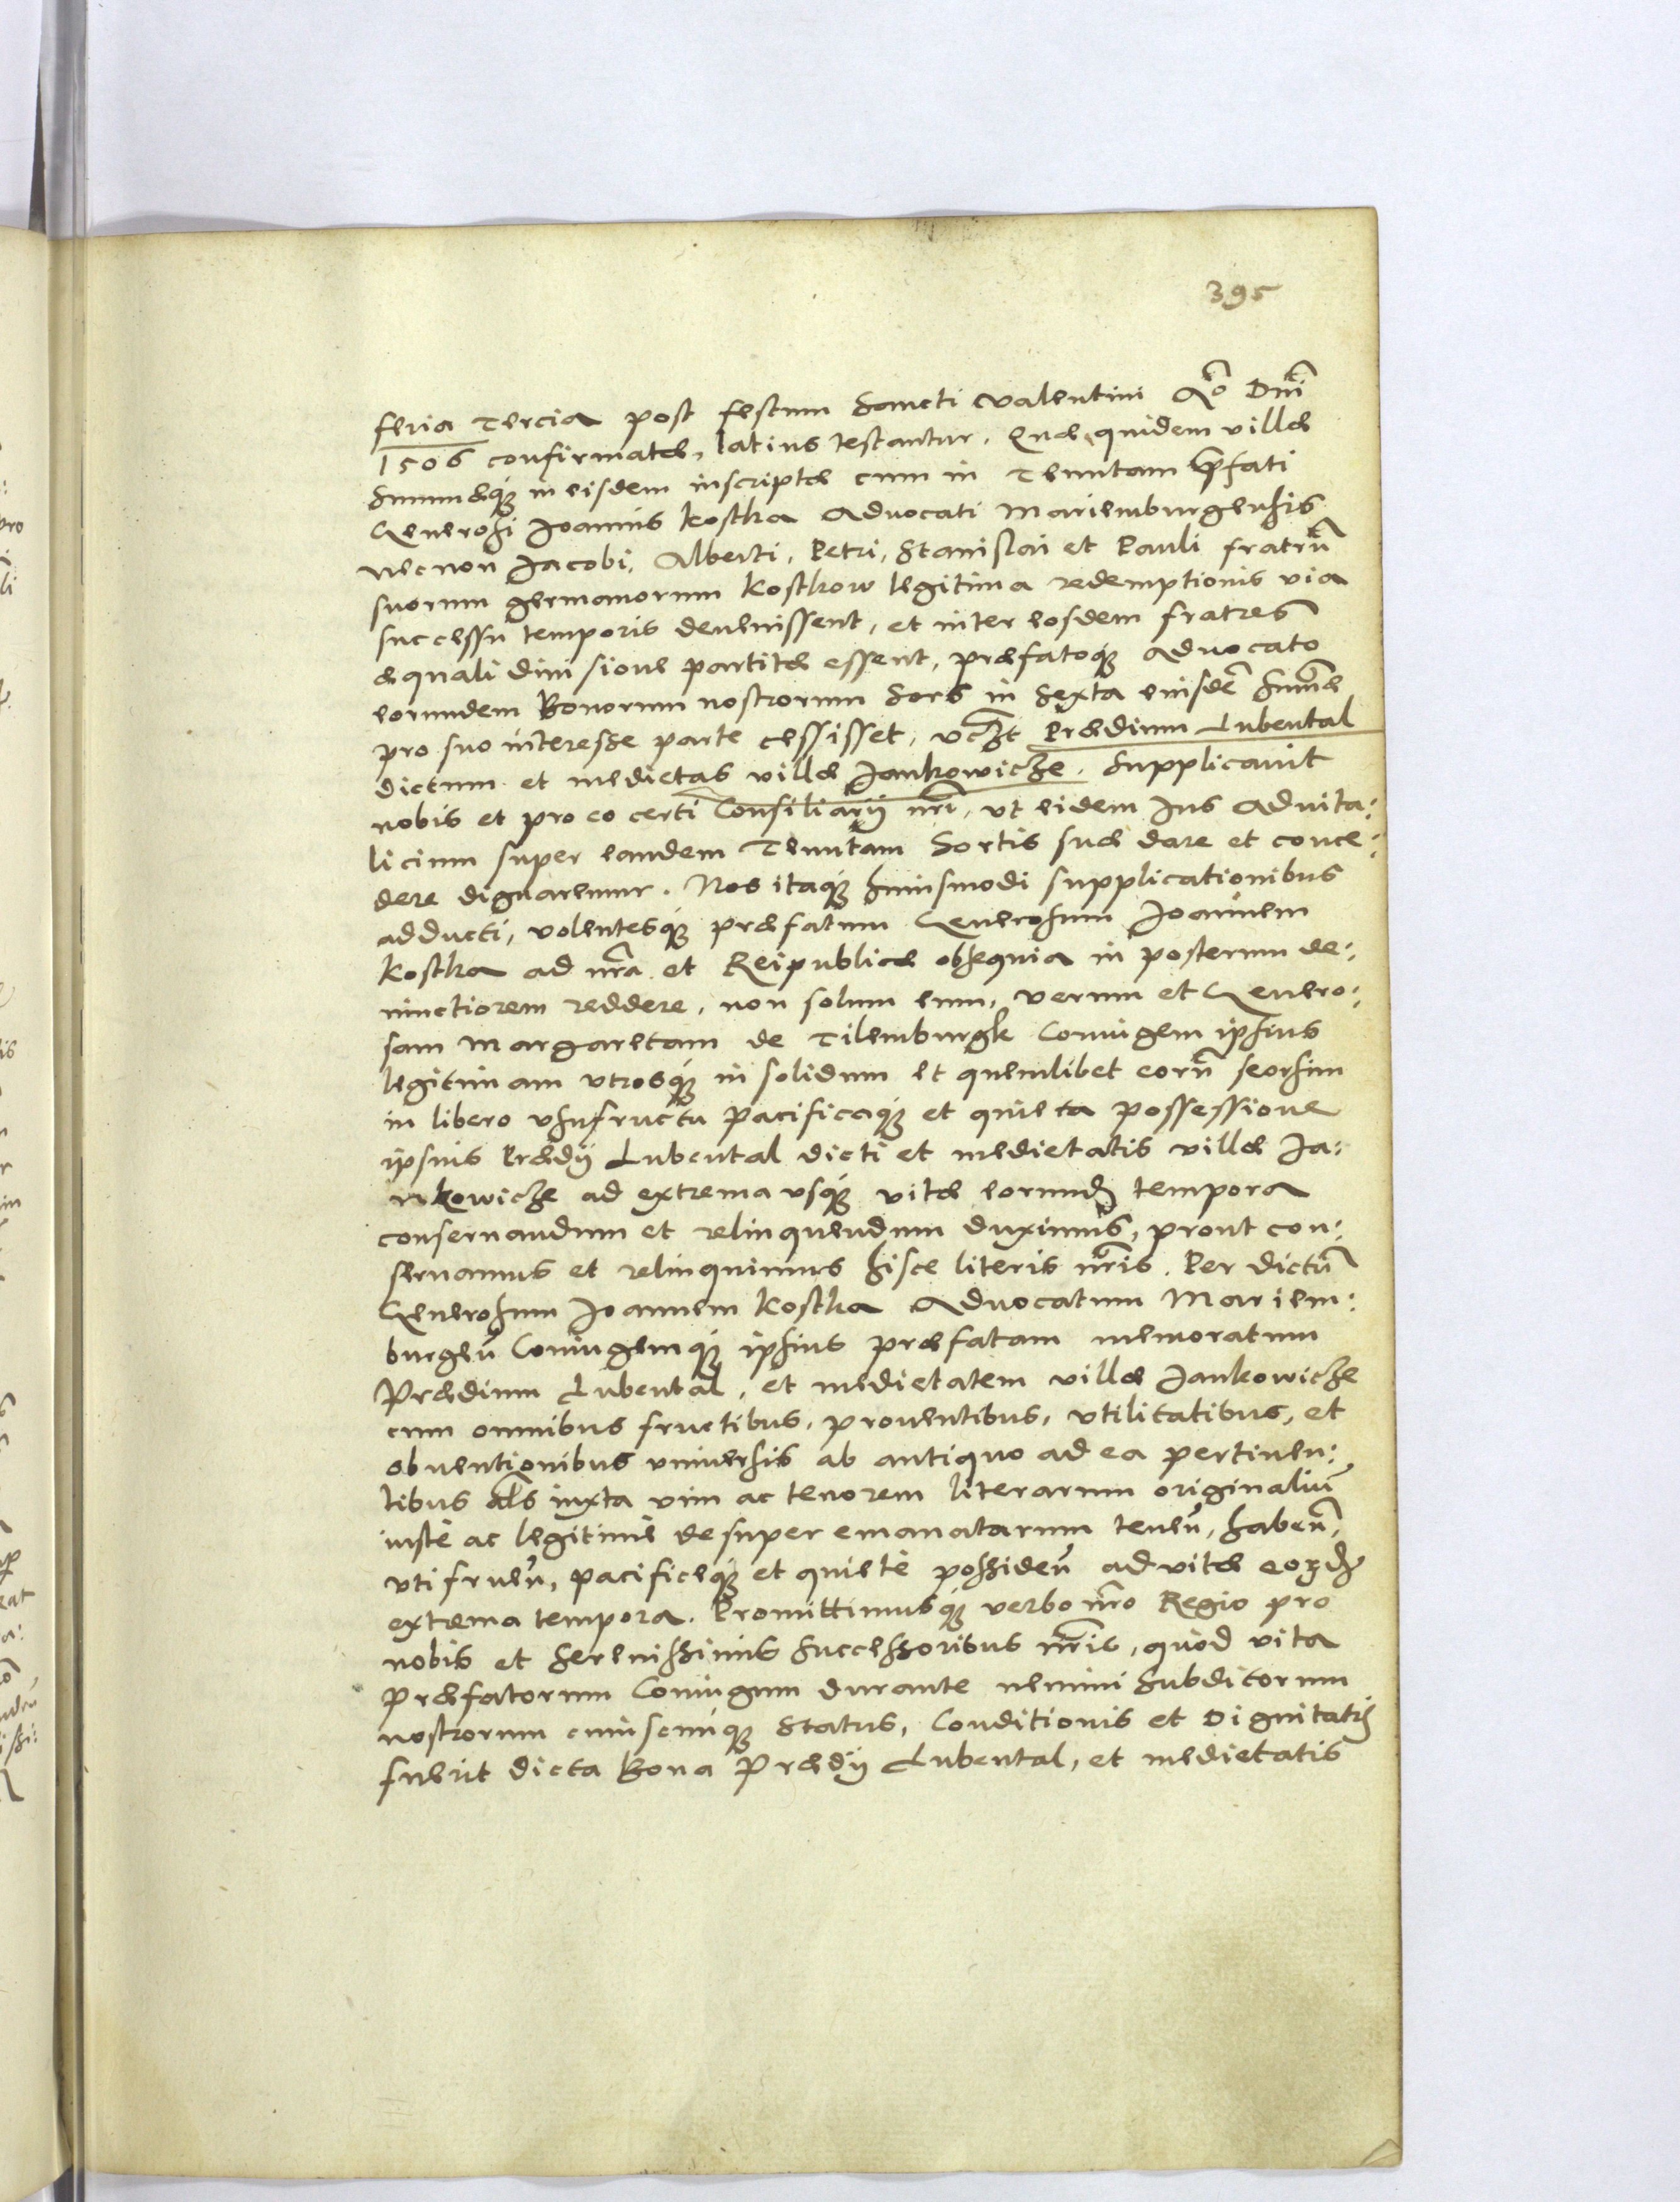 395
feria Tercia post festum Sancti Valentini Aō Dnī
1506 confirmatæ, latius testantur. Quæ quidem villæ
Summæq́ue in eisdem inscriptæ cum in Tenutam p̄fati
Generosi Joannis Kostka Aduocati Mariemburgensis
necnon Jacobi, Alberti, Petri, Stanislai et Pauli fratrū
suorum germanorum Kostkow legitima redemptionis via
successu temporis deuenissent, et inter eosdem fratres
æquali diuisione partitæ essent, præfatoq́ue Aduocato
eorundem Bonorum nostrorum Sors in Sexta eiusdē Sum̄æ
pro suo interesse parte cessisset, vczt Prædium Lubental
dictum et medietas villæ Jankowicze. Supplicauit
nobis et pro eo certi Consiliarij nrī, vt eidem Jus Aduita:
licium super eandem Tenutam Sortis suæ dare et conce:
dere dignaremur. Nos itaq́ue huiusmodi supplicationibus
adducti, volentesq́ue præfatum Generosum Joannem
Kostka ad nrā et Reipublicæ obsequia in posterum de:
uinctiorem reddere, non solum eum, verum et Genero:
sam Margaretam de Tilemburgk Coniugem ipsius
legitimam vtrosq́ue in solidum et quemlibet eorū seorsim
in libero vsufructu pacificaq́ue et quieta possessione
ipsius Prædij Lubental dicti et medietatis villæ Ja:
nkowicze ad extrema vsq́ue vitæ eorund tempora
conseruandum et relinquendum duximus, prout con:
seruamus et relinquimus hisce literis nrīs. Per dictū
Generosum Joannem Kostka Aduocatum Mariem:
burgeñ Coniugemq́ue ipsius præfatam memoratum
Prædium Lubental, et medietatem villæ Jankowicze
cum omnibus fructibus, prouentibus, vtilitatibus, et
obuentionibus vniuersis ab antiquo ad ea pertinen:
tibus als iuxta vim ac tenorem literarum originaliū
iustè ac legitimè desuper emanatarum teneñ, habeñ,
vtifrueñ, pacificeq́ue et quietè possideñ ad vitæ eord
extrema tempora. Promittimusq́ue verbo nrō Regio pro
nobis et Serenissimis Successoribus nrīs, quòd vita
præfatorum Coniugum durante nemini Subditorum
nostrorum cuiuscunq́ue Status, Conditionis et Dignitatis
fuerit dicta Bona Prædij Lubental, et medietatis